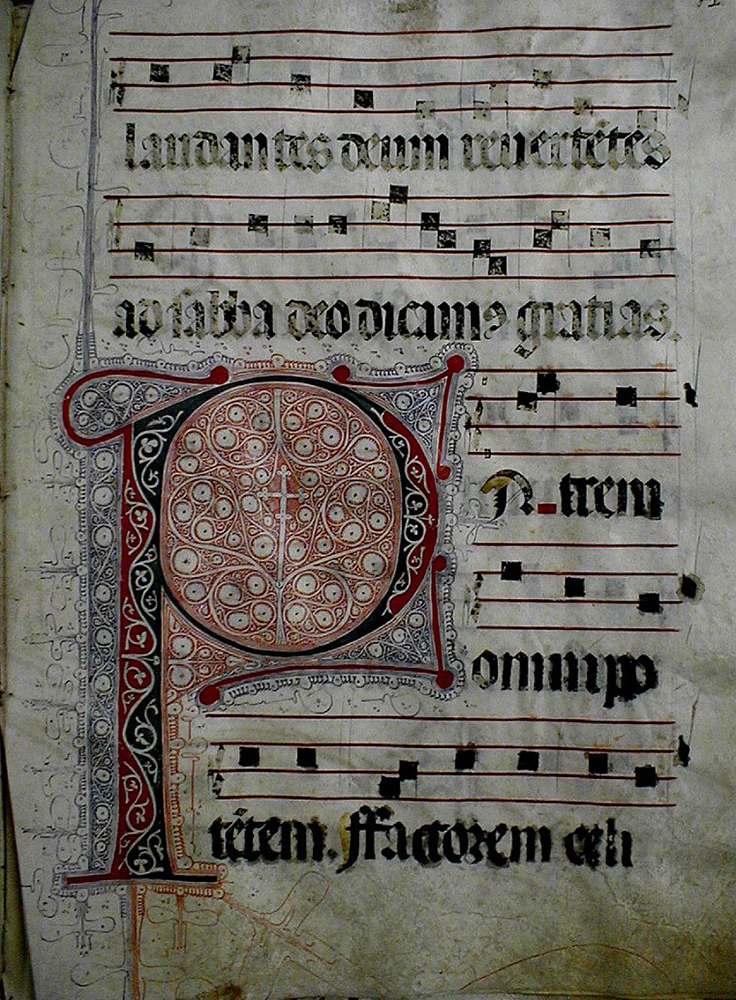 laudantes deum revertētes
ad sabba deo dicamꝰ gratias.
P
Atrem
omnipo
tētem. ffactorem celi